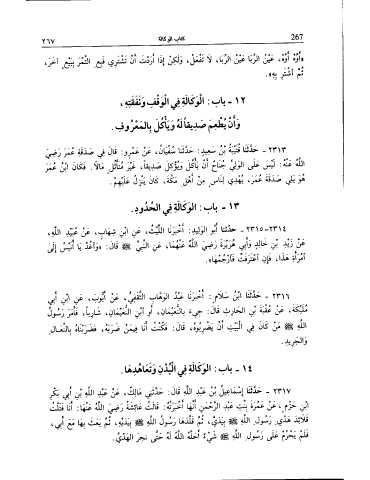 ٢٦٧ كتاب الوكالة 267
«أَوَّهْ أَوَّهْ، عَيْنُ الرِّبَا عَيْنُ الرِّبَا، لَا تَفْعَلْ، وَلَكِنْ إِذَا أَرَدْتَ أَنْ تَشْتَرِيَ فَبِعِ التَّمْرَ بِبَيْعٍ آخَرَ،
ثُمَّ اشْتَرِ بِهِ».
١٢ - باب: الْوَكَالَةِ فِي الْوَقْفِ وَنَفَقَتِهِ،
وَأَنْ يُطْعِمَ صَدِيقاً لَهُ وَيَأْكُلَ بِالْمَعْرُوفِ.
٢٣١٣ - حَدَّثَنَا قُتَيْبَةُ بْنُ سَعِيدٍ: حَدَّثَنَا سُفْيَانُ، عَنْ عَمْرٍو: قَالَ فِي صَدَقَةِ عُمَرَ رَضِيَ
اللَّهُ عَنْهُ: لَيْسَ عَلَى الْوَلِيِّ جُنَاحٌ أَنْ يَأْكُلَ وَيُؤْكِلَ صَدِيقاً، غَيْرَ مُتَأَثِّلٍ مَالاً. فَكَانَ ابْنُ عُمَرَ
هُوَ يَلِي صَدَقَةَ عُمَرَ، يُهْدِي لِنَاسٍ مِنْ أَهْلِ مَكَّةَ، كَانَ يَنْزِلُ عَلَيْهِمْ.
١٣ - باب: الْوَكَالَةِ فِي الْحُدُودِ.
٢٣١٤-٢٣١٥ - حَدَّثَنَا أَبُو الْوَلِيدِ: أَخْبَرَنَا اللَّيْثُ، عَنِ ابْنِ شِهَابٍ، عَنْ عُبَيْدِ اللَّهِ،
عَنْ زَيْدِ بْنِ خَالِدٍ وَأَبِي هُرَيْرَةَ رَضِيَ اللَّهُ عَنْهُمَا، عَنِ النَّبِيِّ ﷺ قَالَ: «وَاغْدُ يَا أُنَيْسُ إِلَى
امْرَأَةِ هَذَا، فَإِنِ اعْتَرَفَتْ فَارْجُمْهَا».
٢٣١٦ - حَدَّثَنَا ابْنُ سَلَامٍ: أَخْبَرَنَا عَبْدُ الْوَهَّابِ الثَّقَفِيُّ، عَنْ أَيُّوبَ، عَنِ ابْنِ أَبِي
مُلَيْكَةَ، عَنْ عُقْبَةَ بْنِ الْحَارِثِ قَالَ: جِيءَ بِالنُّعَيْمَانِ، أَوِ ابْنِ النُّعَيْمَانِ، شَارِباً، فَأَمَرَ رَسُولُ
اللَّهِ ﷺ مَنْ كَانَ فِي الْبَيْتِ أَنْ يَضْرِبُوهُ، قَالَ: فَكُنْتُ أَنَا فِيمَنْ ضَرَبَهُ، فَضَرَبْنَاهُ بِالنِّعَالِ
وَالْجَرِيدِ.
١٤ - باب: الْوَكَالَةِ فِي الْبُدْنِ وَتَعَاهُدِهَا.
٢٣١٧ - حَدَّثَنَا إِسْمَاعِيلُ بْنُ عَبْدِ اللَّهِ قَالَ: حَدَّثَنِي مَالِكٌ، عَنْ عَبْدِ اللَّهِ بْنِ أَبِي بَكْرِ
ابْنِ حَزْمٍ، عَنْ عَمْرَةَ بِنْتِ عَبْدِ الرَّحْمَنِ أَنَّهَا أَخْبَرَتْهُ: قَالَتْ عَائِشَةُ رَضِيَ اللَّهُ عَنْهَا: أَنَا فَتَلْتُ
قَلَائِدَ هَدْيِ رَسُولِ اللَّهِ ﷺ بِيَدَيَّ، ثُمَّ قَلَّدَهَا رَسُولُ اللَّهِ ﷺ بِيَدَيْهِ، ثُمَّ بَعَثَ بِهَا مَعَ أَبِي،
فَلَمْ يَحْرُمْ عَلَى رَسُولِ اللَّهِ ﷺ شَيْءٌ أَحَلَّهُ اللَّهُ لَهُ حَتَّى نُحِرَ الْهَدْيُ.